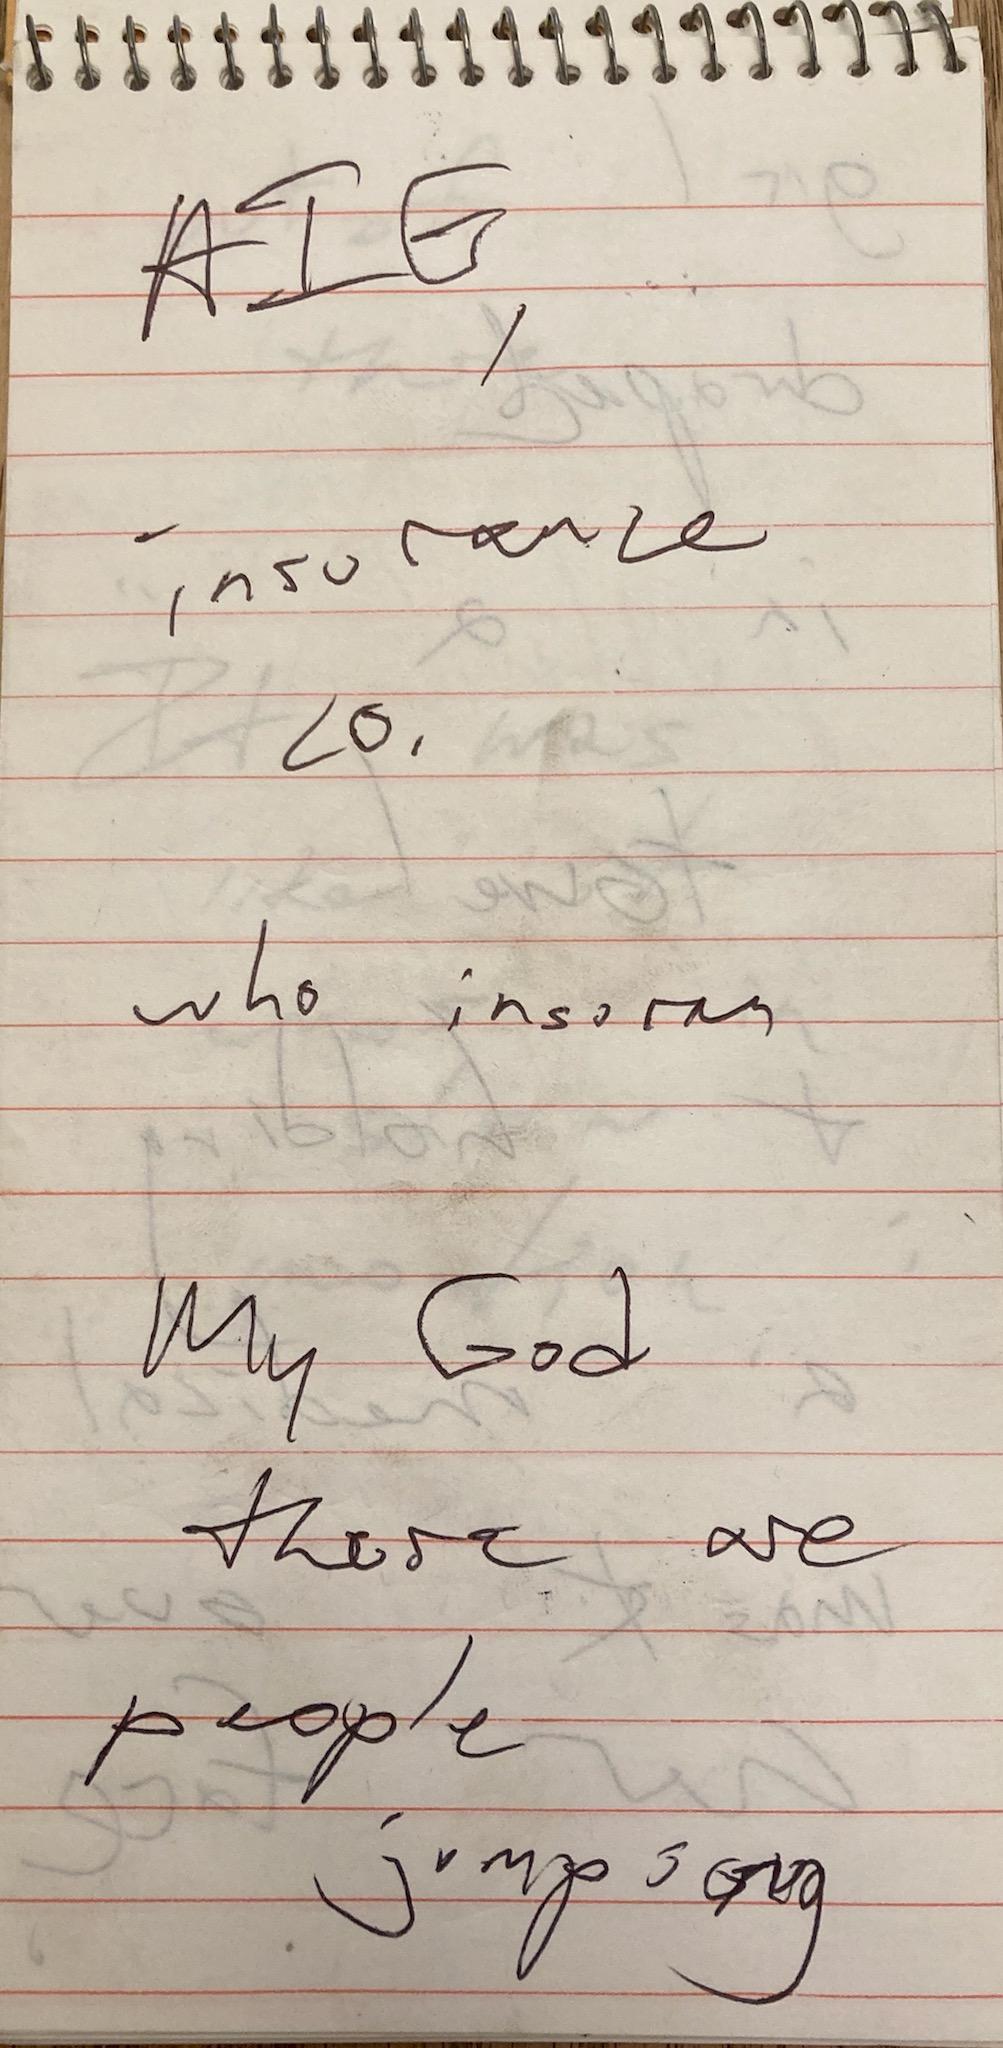 AIG,
insurance
co.
who insoran
My God
there are
people